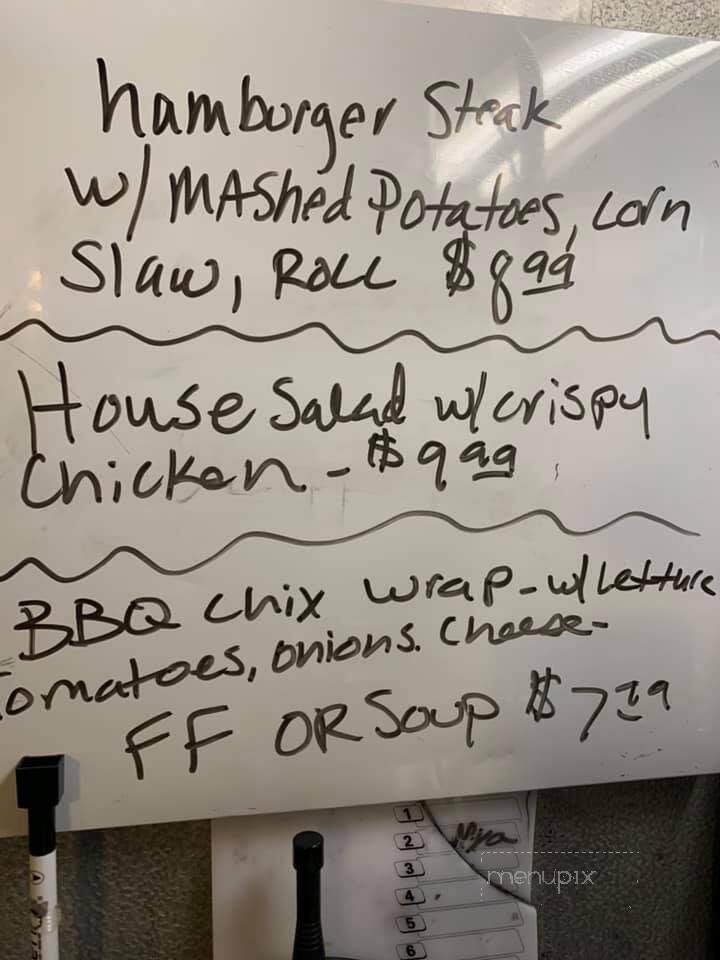 hamburger Steak
w/ MAShed Potatoes, corn
Slaw, Roll $8 99
House Salad w/ crispy
Chicken - $9 99
BBQ chix wrap - w/ Lettuce
Tomatoes, onions. Cheese -
FF OR Soup $7
1
2 Mya
3
4
5
6
menupix